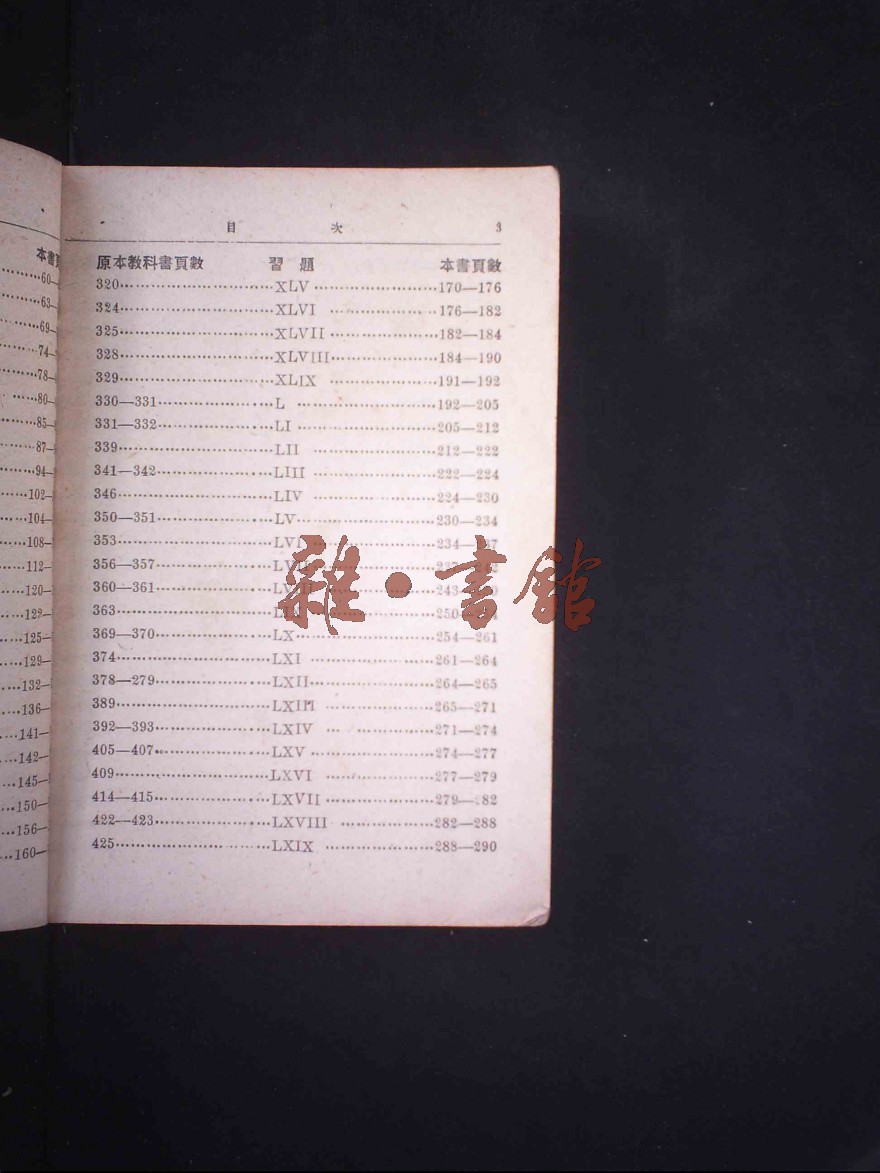 目 次 3
原本教科書頁數 習題 本書頁數
320 XLV 170—176
324 XLVI 176—182
325 XLVII 182—184
328 XLVIII 184—190
329 XLIX 191—192
330—331 L 192—205
331—332 LI 205—212
339 LII 212—222
341—342 LIII 222—224
346 LIV 224—230
350—351 LV 230—234
353 LVI 234—
356—357
360—361 243—
363 250—
369—370 LX 254—261
374 LXI 261—264
378—279 LXII 264—265
389 LXIII 265—271
392—393 LXIV 271—274
405—407 LXV 274—277
409 LXVI 277—279
414—415 LXVII 279— 82
422—423 LXVIII 282—288
425 LXIX 288—290
本書頁
60—
63—
69—
74—
78—
80—
85—
87—
94—
102—
104—
108—
112—
120—
122—
125—
129—
132—
136—
141—
142—
145—
150—
156—
160—
雜·書館